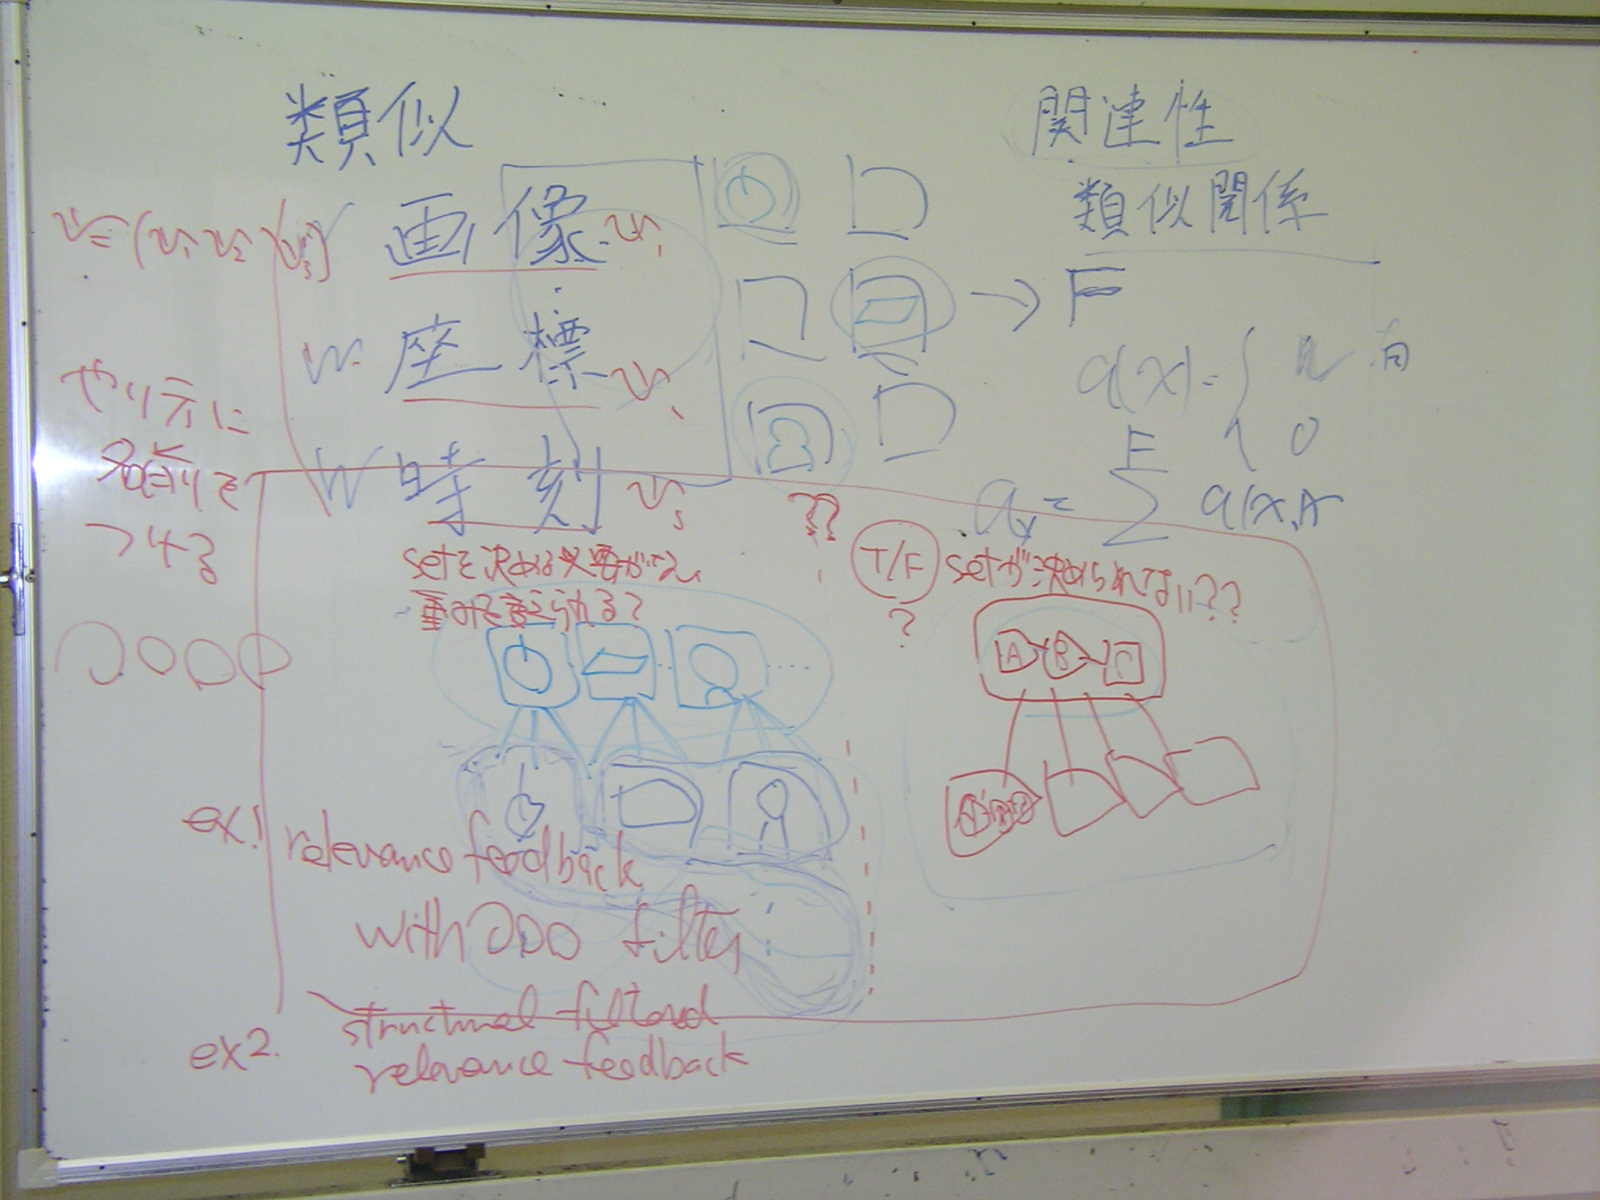 類似
関連性
類似関係
v=(v₁ v₂ v₃)
画像 v₁
座標 v₂
→ F
a(x)={
0
時刻 v₃
やり方に
名前を
つける
F
Σ
setを決める必要がない
重みを変えられる?
??
T/F
?
setが決められてない??
A B C
ex1 relevance feedback
with ○○○ filter
ex2. structural filtered
relevance feedback